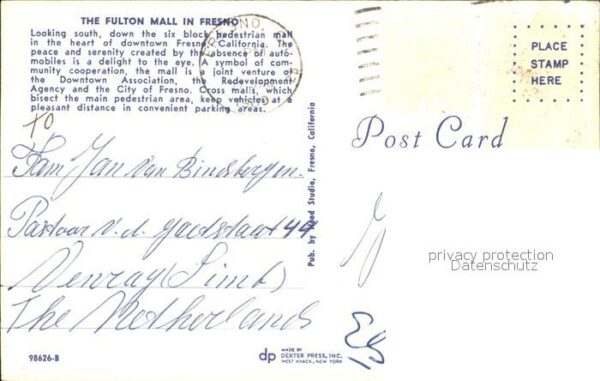 THE FULTON MALL IN FRESNO
Looking south, down the six block pedestrian mall
in the heart of downtown Fresno, California. The
peace and serenity created by the absence of auto-
mobiles is a delight to the eye. A symbol of com-
munity cooperation, the mall is a joint venture of
the Downtown Association, the Redevelopment
Agency and the City of Fresno. Cross malls, which
bisect the main pedestrian area, keep vehicles at a
pleasant distance in convenient parking areas.
PLACE
STAMP
HERE
Post Card
TO
Fam Jan van Binsbergen.
Pastoor v.d. 44
Venray (Limb)
The Netherlands
Pub. by Hood Studio, Fresno, California
privacy protection
Datenschutz
98626-B
dp
MADE BY
DEXTER PRESS, INC.
WEST NYACK, NEW YORK